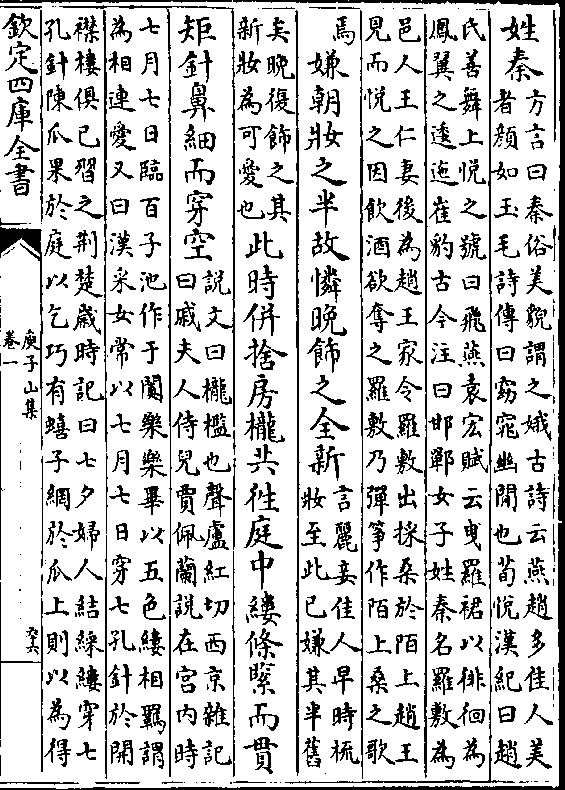 姓秦
方言曰秦俗美貌謂之娥古詩云燕趙多佳人美
者顔如玉毛詩傳曰窈窕幽閒也荀悅漢紀曰趙
氏善舞上悅之號曰飛燕袁宏賦云曳羅裙以徘徊為
鳳翼之逶迤崔豹古今注曰邯鄲女子姓秦名羅敷為
邑人王仁妻後為趙王家令羅敷出採桑於陌上趙王
見而悅之因飲酒欲奪之羅敷乃彈筝作陌上桑之歌
焉
嫌朝妝之半故憐晚飾之全新
言麗妾佳人早時梳
妝至此已嫌其半舊
矣晚復飾之其
新妝為可愛也
此時併捨房櫳共往庭中縷條緊而貫
矩針鼻細而穿空
說文曰櫳檻也聲盧紅切西京雜記
曰戚夫人侍兒賈佩蘭說在宫内時
七月七日臨百子池作于闐樂樂畢以五色縷相羈謂
為相連愛又曰漢采女常以七月七日穿七孔針於開
襟樓俱已習之荆楚歲時記曰七夕婦人結綵縷穿七
孔針陳瓜果於庭以乞巧有蟢子網於瓜上則以為得
欽定四庫全書
庾子山集
卷一